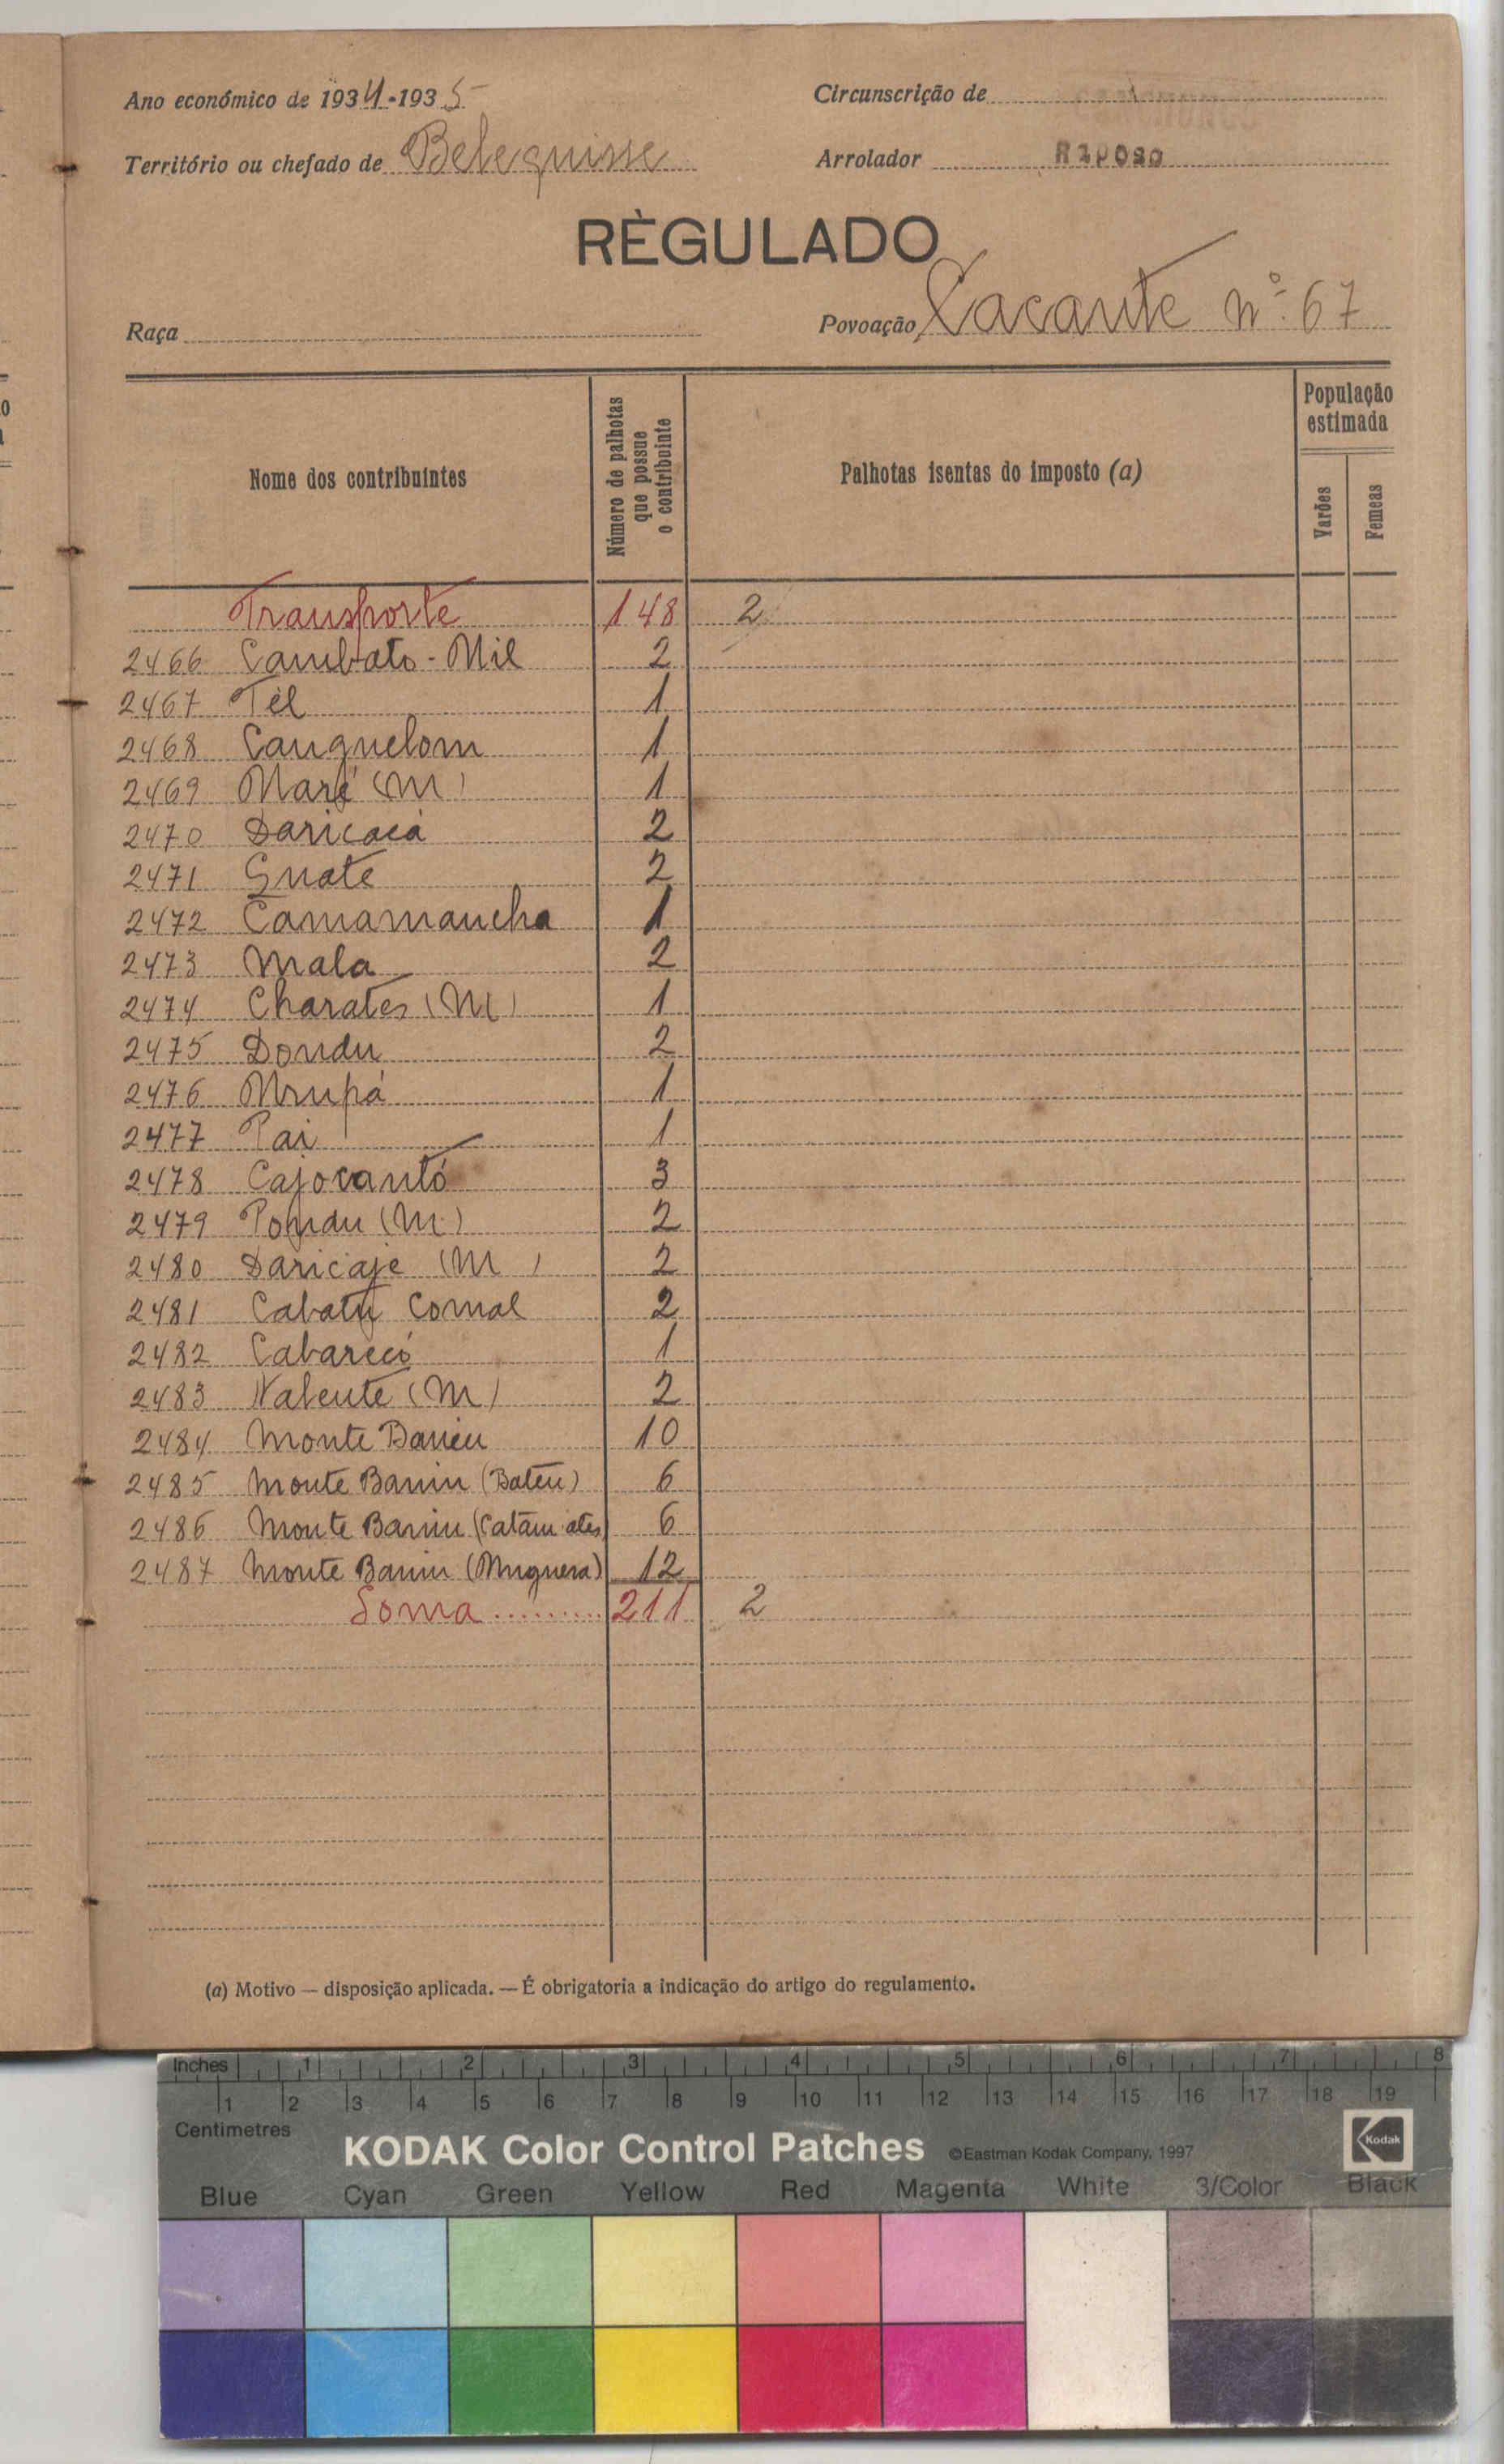 Ano económico de 1934-1935
Circunscrição de
Território ou chefado de Belequisse
Arrolador Raposo
RÈGULADO
Raça
Povoação Cacante nº 67
Nome dos contribuintes
Número de palhotas que possue o contribuinte
Palhotas isentas do imposto (a)
População estimada
Varões
Femeas
Transporte 148 2
2466 Cambato-Mil 2
2467 Tél 1
2468 Canquelom 1
2469 Maré (M) 1
2470 Daricacá 2
2471 Guate 2
2472 Camamancha 1
2473 Mala 2
2474 Charates (M) 1
2475 Dondu 2
2476 Mrupá 1
2477 Pai 1
2478 Cajocantó 3
2479 Pondu (M) 2
2480 Daricaje (M) 2
2481 Cabatu Comal 2
2482 Cabarecó 1
2483 Valente (M) 2
2484 Monte 10
2485 Monte Baniu 6
2486 Monte Baniu 6
2487 Monte Baniu 12
Soma ......... 211 2
(a) Motivo — disposição aplicada. — É obrigatoria a indicação do artigo do regulamento.
Inches 1 2 3 4 5 6 7 8
1 2 3 4 5 6 7 8 9 10 11 12 13 14 15 16 17 18 19
Centimetres
KODAK Color Control Patches ©Eastman Kodak Company, 1997 Kodak
Blue Cyan Green Yellow Red Magenta White 3/Color Black